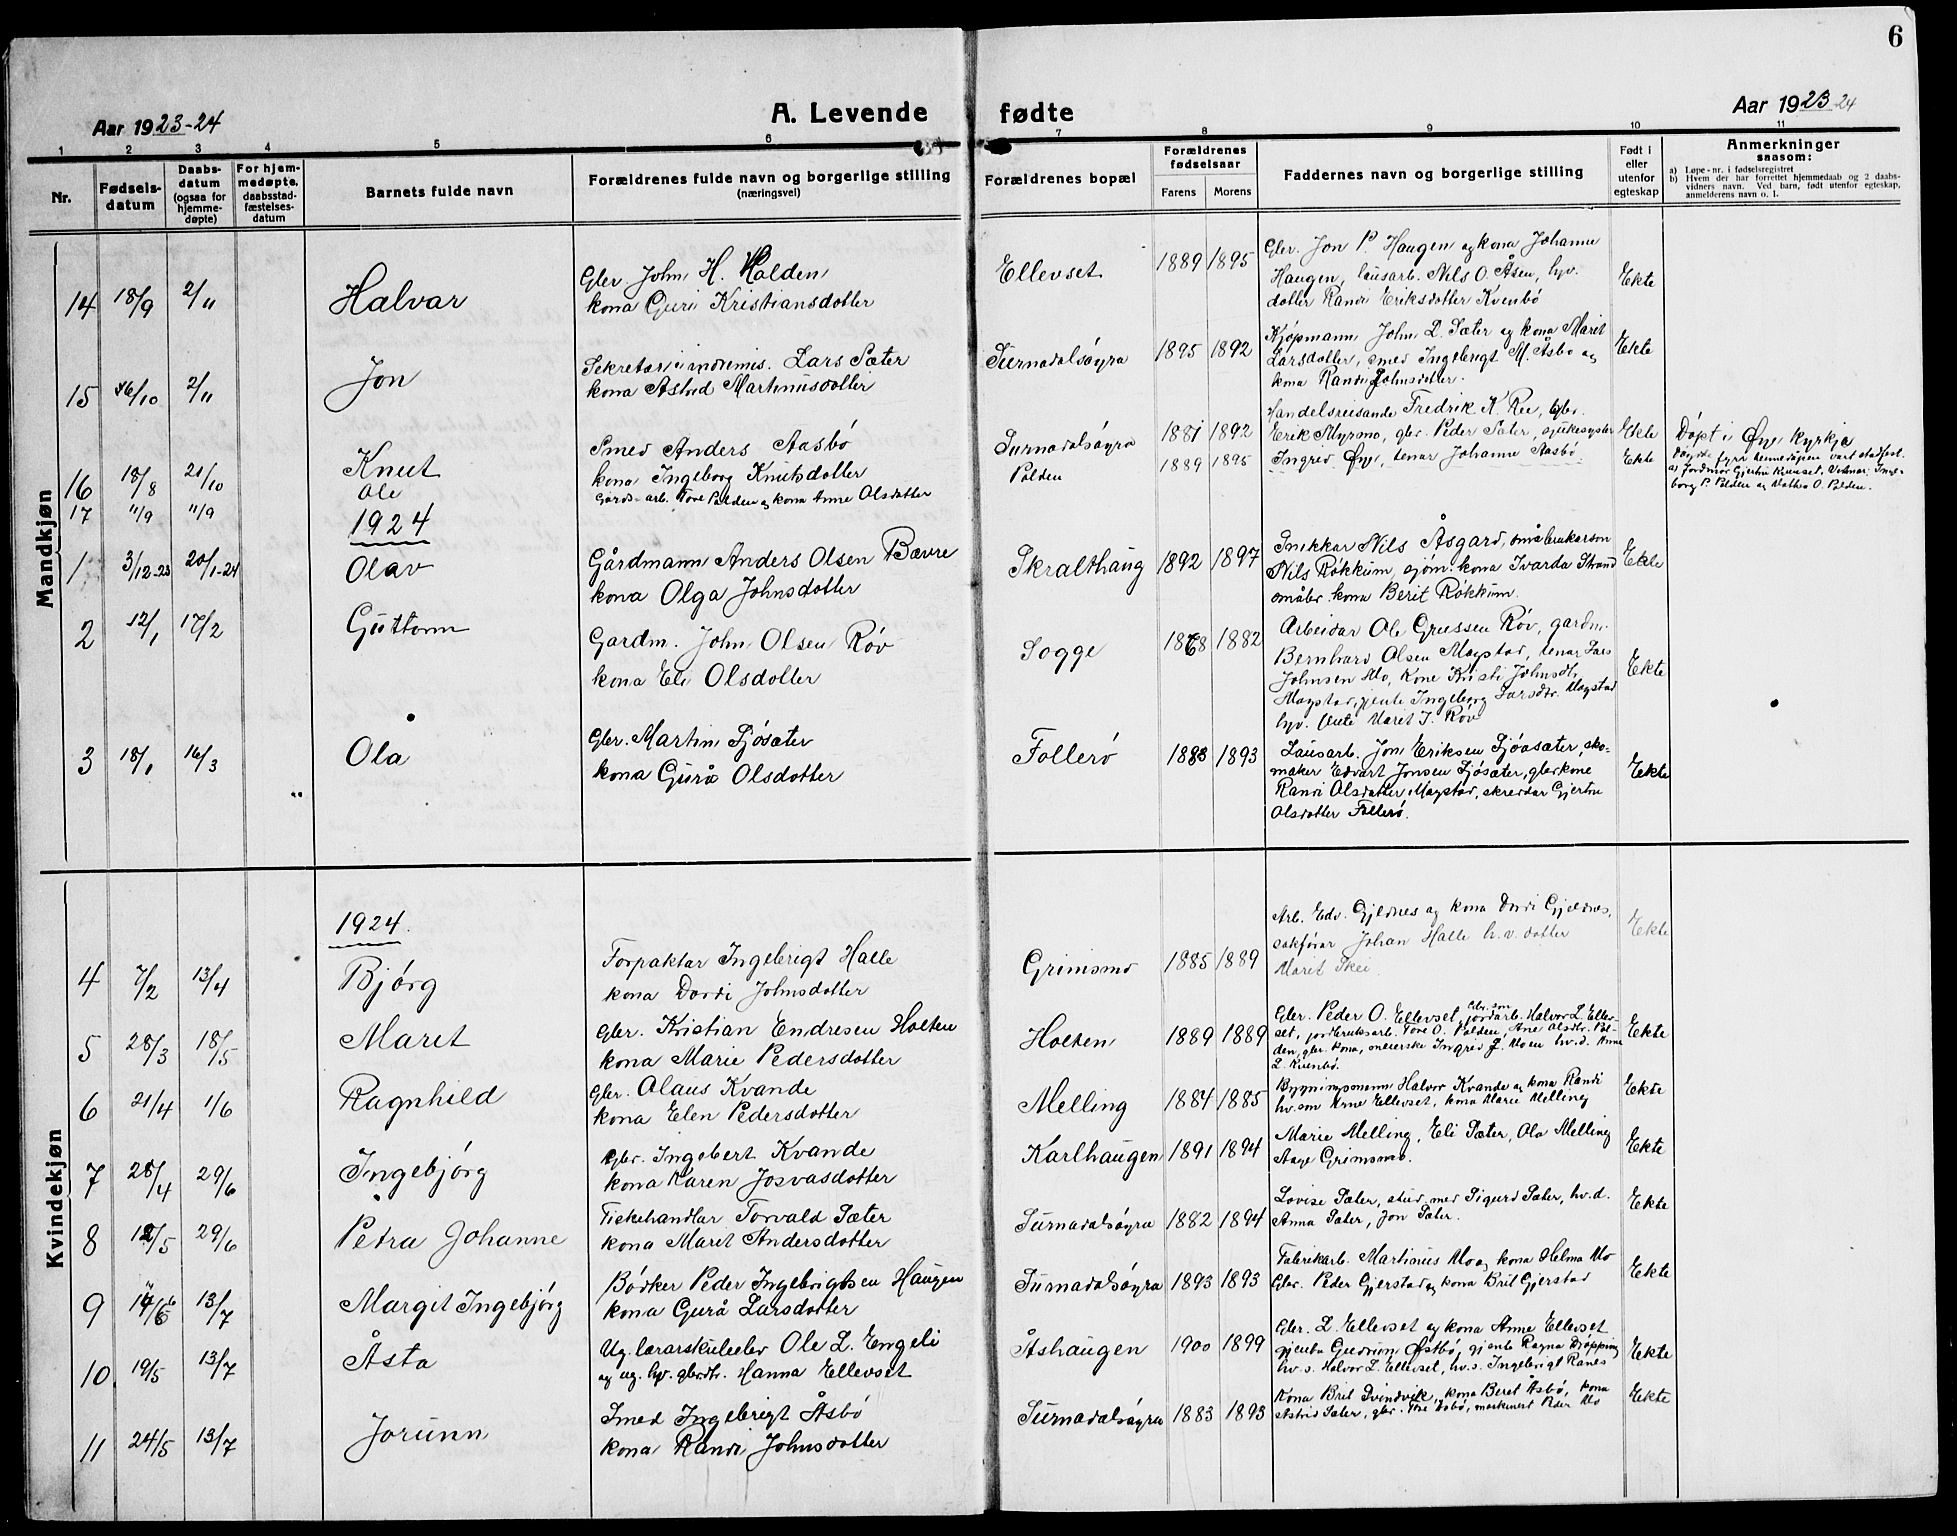 6
Aar 1923-24
A. Levende fødte
Aar 1923-24
1 2 3 4 5 6 7 8 9 10 11
Nr.
Fødsels-
datum
Daabs-
datum
(ogsaa for
hjemme-
døpte)
For hjem-
medøpte,
daabsstad-
fæstelses-
datum
Barnets fulde navn
Forældrenes fulde navn og borgerlige stilling
(næringsvei)
Forældrenes bopæl
Forældrenes
fødselsaar
Farens Morens
Faddernes navn og borgerlige stilling
Født i
eller
utenfor
egteskap
Anmerkninger
saasom:
a) Løpe-nr. i fødselsregistret
b) Hvem der har forrettet hjemmedaab og 2 daabs-
vidners navn. Ved barn, født utenfor egteskap,
anmelderens navn o. l.
Mandkjøn
14 18/9 2/11 Halvar
Gbr. John H. Halden
kona Guri Kristiansdotter
Ellevset 1889 1895
Gbr. Jon P. Haugen og kona Johanne
Haugen, lausarb. Nils O. Åsen, hv.
dotter Randi Eriksdotter Kvenbø
Ekte
15 16/10 2/11 Jon
Sekretær i indremis. Lars Sæter
kona Astrid Martinusdotter
Surnadalsøyra 1895 1892
Kjøpmann John L. Sæter og kona Marit
Larsdotter, smed Ingebrigt M. Åsbø og
kona Randi Johnsdotter.
Ekte
16 18/8 21/10 Knut
Smed Anders Aasbø
kona Ingeborg Knutsdotter
Surnadalsøyra 1881 1892
Handelsreisande Fredrik K. Ree, gbr.
Erik Myrmo, gbr. Peder Sæter, sjukesyster
Ingrid Øye, tenar Johanne Aasbø.
Ekte
Døpt i Øye kyrkja
17 11/9 11/9 Ole
Gards-arb. Tore Polden og kona Anne Olsdotter
Polden 1889 1895
Ekte
1924
1 3/12-23 20/1-24 Olav
Gårdmann Anders Olsen Bævre
kona Olga Johnsdotter
Skralthaug 1892 1897
Snikkar Nils Åsgard, småbrukarson
Nils Røkkum, sjøm. kona Ivarda Strand
småbr. kona Berit Røkkum.
Ekte
2 12/1 17/2 Guttorm
Gardm. John Olsen Røv
kona Eli Olsdotter
Sogge 1878 1882
Arbeidar Ole Grussen Røv, gardm.
Bernhard Olsen Mogstad, tenar Lars
Johnsen Mo, Kone Kristi Johnsdtr.
Mogstad, jente Ingeborg Larsdtr. Mogstad
hv. jente Marit J. Røv
Ekte
3 18/1 16/3 Ola
Gbr. Martin Sjøsæter
kona Gurå Olsdotter
Follerø 1883 1893
Lausarb. Jon Eriksen Sjøasæter, sko-
maker Edvart Jonsen Sjøsæter, gbrkone
Randi Olsdotter Mogstad, skreddar Gjertru
Olsdotter Follerø.
Ekte
Kvindekjøn
1924.
4 7/2 13/4 Bjørg
Forpaktar Ingebrigt Halle
kona Dordi Johnsdotter
Grimsmo 1885 1889
Arb. Edv. Gjeldnes og kona Dordi Gjeldnes,
sakførar Johan Halle h.v. dotter
Marit Skei.
Ekte
5 28/3 18/5 Marit
Gbr. Kristian Endresen Holten
kona Marie Pedersdotter
Holten 1889 1889
Gbr. Peder O. Ellevset, gbr. son jordarb. Halvor L. Ellev-
set, jordbruksarb. Tore O. Polden, Ane Olsdtr. Pol-
den, gbr. kona, Ingrid J. Moen hv.d. Anne
L. Kvenbø.
Ekte
6 21/4 1/6 Ragnhild
Gbr. Olaus Kvande
kona Elen Pedersdotter
Melling 1884 1885
Bygningsmann Halvor Kvande og kona Randi
hv. søn Arne Ellevset, kona Marie Melling
Ekte
7 28/4 29/6 Ingebjørg
Gbr. Ingebert Kvande
kona Karen Josvasdotter
Karlhaugen 1891 1894
Marie Melling, Eli Sæter, Ola Melling
Aage Grimsmo.
Ekte
8 12/5 29/6 Petra Johanne
Fiskehandlar Torvald Sæter
kona Marit Andersdotter
Surnadalsøyra 1882 1894
Lovise Sæter, stud. med Sigurd Sæter, hv.d.
Anna Sæter, Jon Sæter.
Ekte
9 14/6 13/7 Margit Ingebjørg
Bødker Peder Ingebrigtsen Haugen
kona Gurå Larsdotter
Surnadalsøyra 1893 1893
Fabrikarb. Martinus Mo og kona Helma Mo
Gbr. Peder Gjerstad og kona Brit Gjerstad
Ekte
10 19/5 13/7 Åsta
Ug. lærarskuleelev Ole L. Engeli
og ug. hv. gbrdtr. Hanna Ellevset
Åshaugen 1900 1899
Gbr. L. Ellevset og kona Anne Ellevset
gjenta Gudrun Østbø, gjenta Ragna Drøpping
hv.s. Halvor L. Ellevset, hv.s. Ingebrigt Ranes
Ekte
11 24/5 13/7 Jorunn
Smed Ingebrigt Åsbø
kona Randi Johnsdotter
Surnadalsøyra 1883 1893
Kona Brit Svindvik, kona Beret Åsbø, kona
Astrid Sæter, gbr. Tore Åsbø, maskinist Peder Mo
Ekte